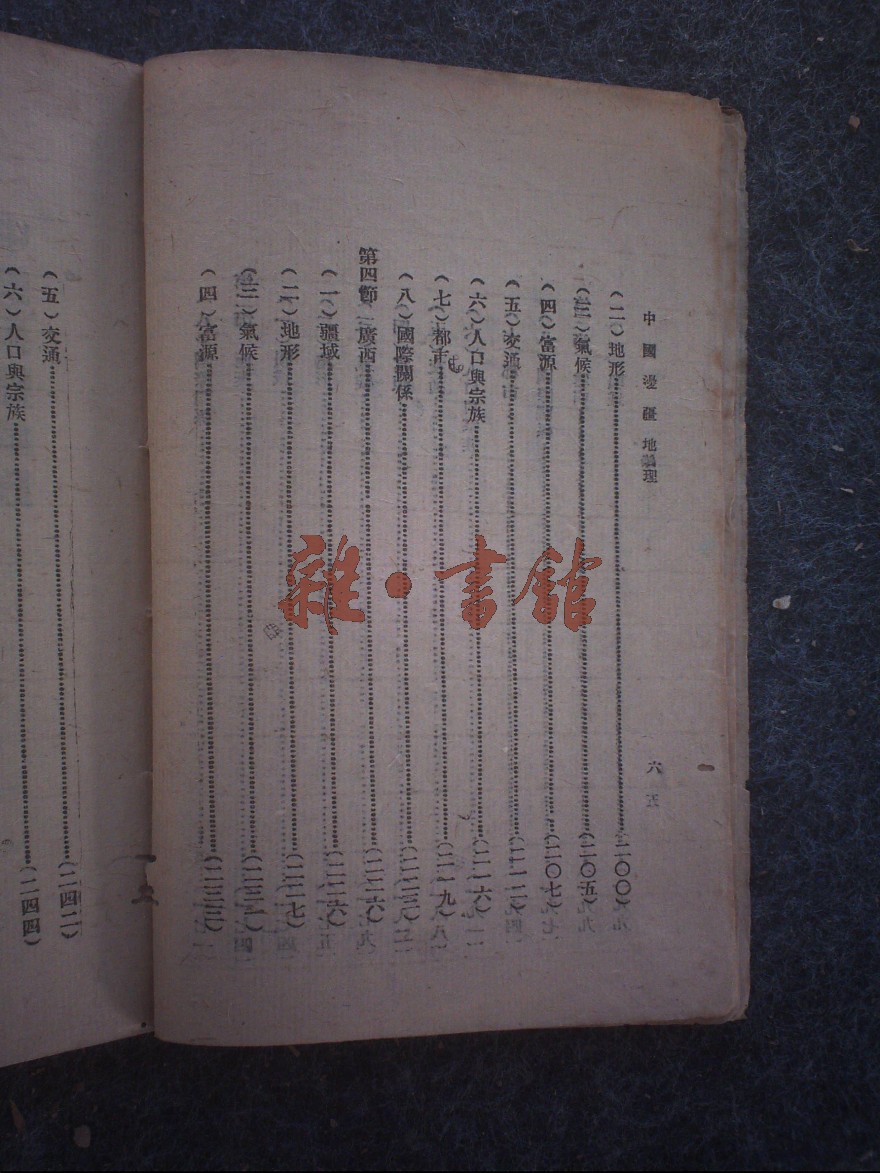 中國邊疆地理
六
(二)地形……(二〇〇)
(三)氣候……(二〇五)
(四)富源……(二〇七)
(五)交通……(二一二)
(六)人口與宗族……(二一六)
(七)都市……(二一九)
(八)國際關係……(二二三)
第四節 廣西……(二二六)
(一)疆域……(二二六)
(二)地形……(二二七)
(三)氣候……
(四)富源……
(五)交通……(二四二)
(六)人口與宗族……(二四四)
雜·書館